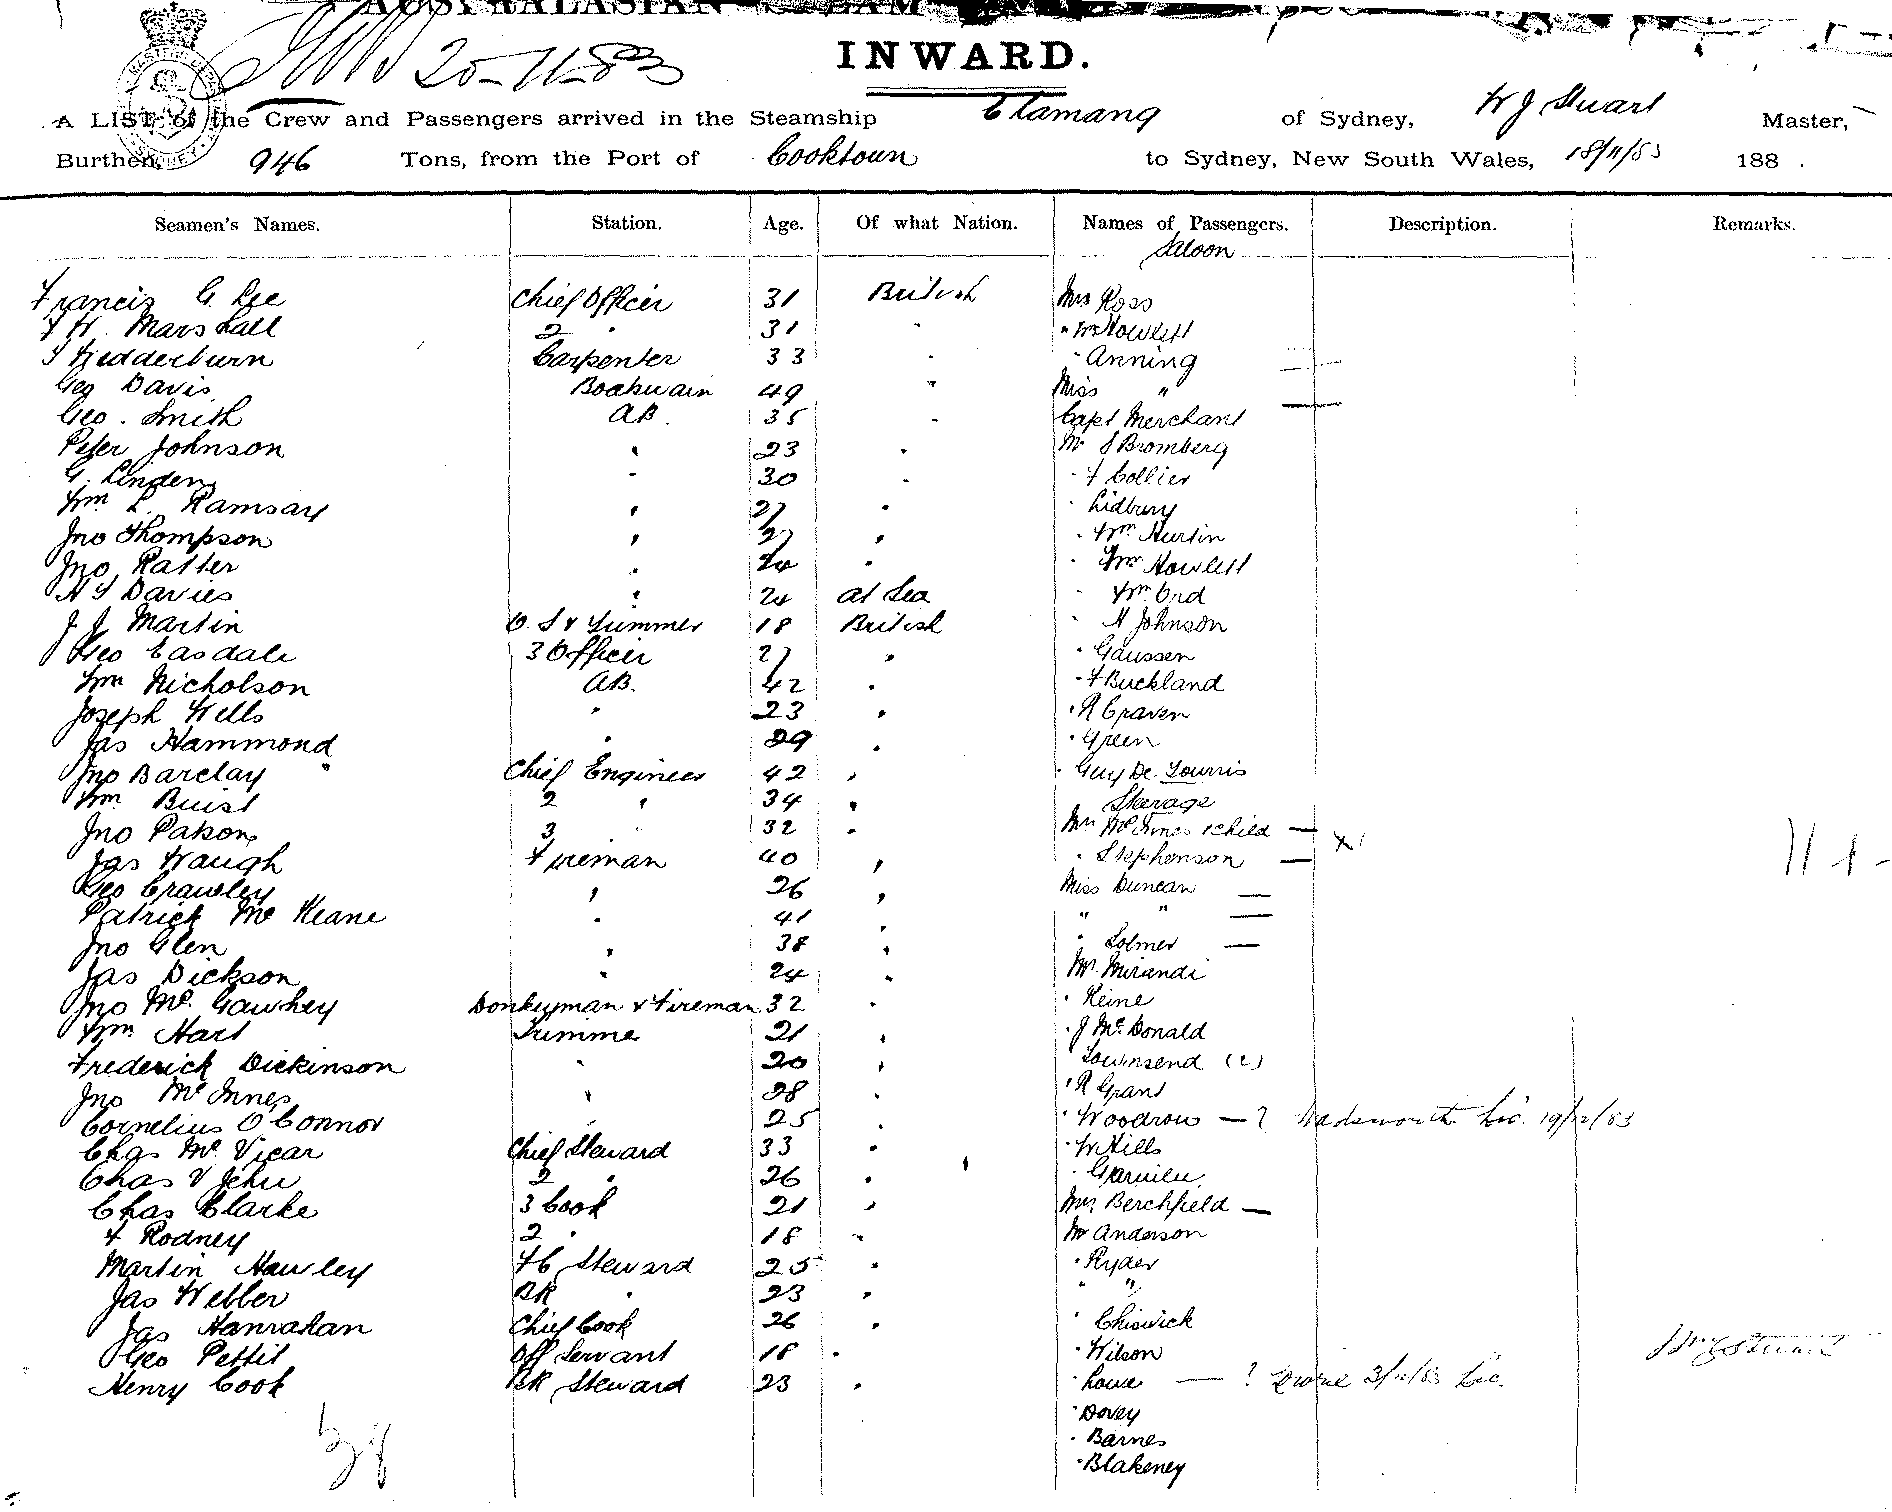 AUSTRALASIAN STEAM
20-11-83
INWARD.
A LIST of the Crew and Passengers arrived in the Steamship of Sydney, W J Stuart Master,
Burthen, 946 Tons, from the Port of Cooktown to Sydney, New South Wales, 18/11/83 188 .
Seamen's Names. Station. Age. Of what Nation. Names of Passengers. Description. Remarks.
Saloon
Francis G. Lee Chief Officer 31 British Mrs Ross
F W. Marshall 2 " 31 " " Wm Howlett
Wedderburn Carpenter 33 " " Anning —
Geo Davis Boatswain 49 " Miss "
Geo. Smith AB. 35 " Capt Merchant —
Peter Johnson " 23 " Mr S Bromberg
G. Linden " 30 " " F Collier
Wm L. Ramsay " 27 " " Lidbury
Jno Thompson " 27 " " Wm Hurtin
Jno Ratter " 24 " " Wm Howlett
H S Davies " 24 at Sea " Wm Ord
J J Martin O.S & Trimmer 18 British " H Johnson
Geo Easdale 3 Officer 27 " " Gaussen
Wm Nicholson AB. 42 " " F Buckland
Joseph Wells " 23 " " R Craven
Jas Hammond " 29 " " Green
Jno Barclay Chief Engineer 42 " " Guy De
Wm Buist 2 " 34 " Steerage
Jno Patson 3 " 32 " Mrs McInnes & child — x1
Jas Waugh Fireman 40 " " Stephenson —
Geo Crawley " 26 " Miss Duncan —
Patrick Mc Keane " 41 " " " —
Jno Glen " 38 " " Solmer —
Jas Dickson " 24 " Mr. Mirandi
Jno Mc. Gawhey Donkeyman & Fireman 32 " " Heine
Wm Hart Trimmer 21 " " J McDonald
Frederick Dickinson " 20 " Townsend (2)
Jno McInnes " 28 " R Grant
Cornelius O'Connor " 25 " " Woodrow — ? Wadsworth Lic. 19/12/83
Chas Mc Vicar Chief Steward 33 " " W Hills
Chas V Jehu 2 " 26 "
Chas Clarke 3 Cook 21 " Mrs Berchfield —
F Rodney 2 " 18 " Mr Anderson
Martin Hawley FC Steward 25 " " Ryder
Jas Webber BR " 23 " " "
Jas Hanrahan Chief Cook 26 " " Chiswick
Geo Pettit Off Servant 18 " " Wilson
Henry Cook BR Steward 23 " " Lowe — ?
" Dovey
" Barnes
" Blakeney
38